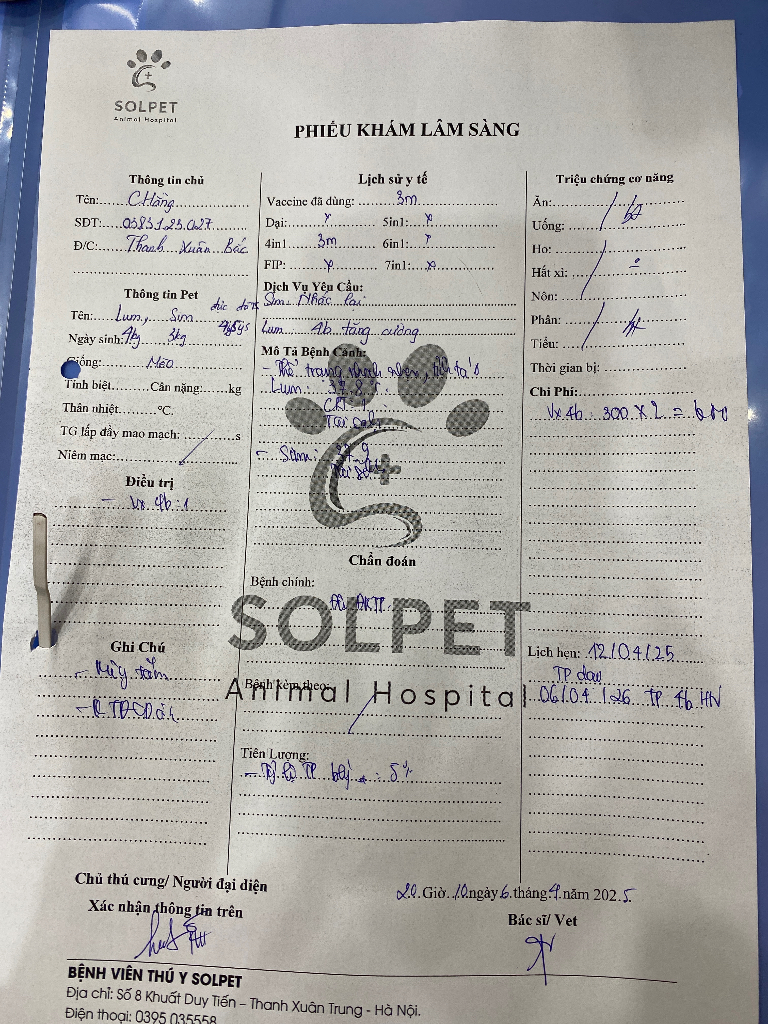 SOLPET
Animal Hospital
PHIẾU KHÁM LÂM SÀNG
Thông tin chủ
Tên: C Hằng
SĐT: 0383125027
Đ/C: Thanh Xuân Bắc
Thông tin Pet
Tên: Lum, Sum
Ngày sinh: 4kg 3kg
Giống: Mèo
Tính biệt Cân nặng: kg
Thân nhiệt °C.
TG lấp đầy mao mạch: s
Niêm mạc:
Điều trị
- Vx 4b : 1
Ghi Chú
- tắm
Lịch sử y tế
Vaccine đã dùng: 3m
Dại: x 5in1: x
4in1 3m 6in1:
FIP: x 7in1: x
Dịch Vụ Yêu Cầu:
Sum: Nhắc lại
Lum 4b tăng cường
Mô Tả Bệnh Cảnh:
- Thể trạng nhanh nhẹn,
Lum: 37.8
CRT
Tai
- Sum: 37.9
Tai
Chẩn đoán
Bệnh chính:
Bệnh kèm theo:
Tiên Lượng:
TP 5%
Triệu chứng cơ năng
Ăn: bt
Uống:
Ho:
Hắt xì:
Nôn:
Phân: bt
Tiểu:
Thời gian bị:
Chi Phí:
Vx 4b : 300 x 2 = 600
Lịch hẹn: 12/04/25
TP
06/04/26 TP 4b HN
SOLPET
Animal Hospital
Chủ thú cưng/ Người đại diện
Xác nhận thông tin trên
20 Giờ 10 ngày 6 tháng 4 năm 2025.
Bác sĩ/ Vet
BỆNH VIÊN THÚ Y SOLPET
Địa chỉ: Số 8 Khuất Duy Tiến – Thanh Xuân Trung - Hà Nội.
Điện thoại: 0395 035558